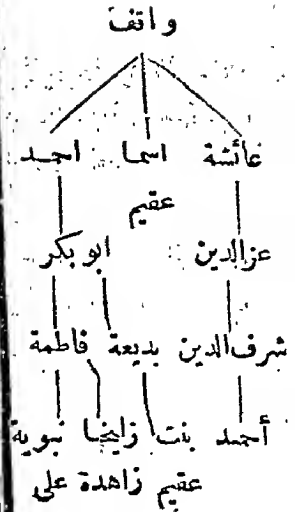 واقف
عائشة اسما احمد
عقيم
عزالدين ابوبكر
شرف الدين بديعة فاطمة
أحمد بنت زليخا نبوية
عقيم زاهدة على